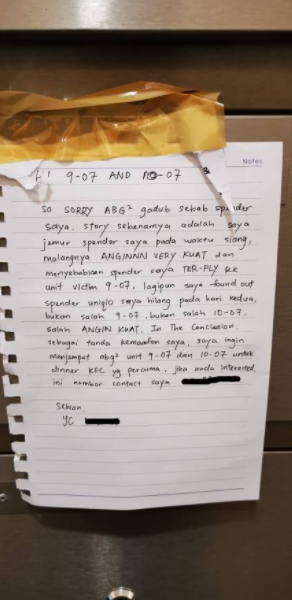 Notes
9-07 AND 10-07
SO SORRY ABG² gaduh sebab spender
saya. story sebenarnya adalah saya
jemur spender saya pada waktu siang,
malangnya ANGINNN VERY KUAT dan
menyebabkan spender saya TER-FLY ke
unit victim 9-07. lagipun saya found out
spender uniqlo saya hilang pada hari kedua,
bukan salah 9-07. bukan salah 10-07.
salah ANGIN KUAT. In The Conclusion,
sebagai tanda kemaafan saya, saya ingin
menjemput abg² unit 9-07 dan 10-07 untuk
dinner KFC yg percuma, jika anda interested.
ini nombor contact saya
Sekian,
YC